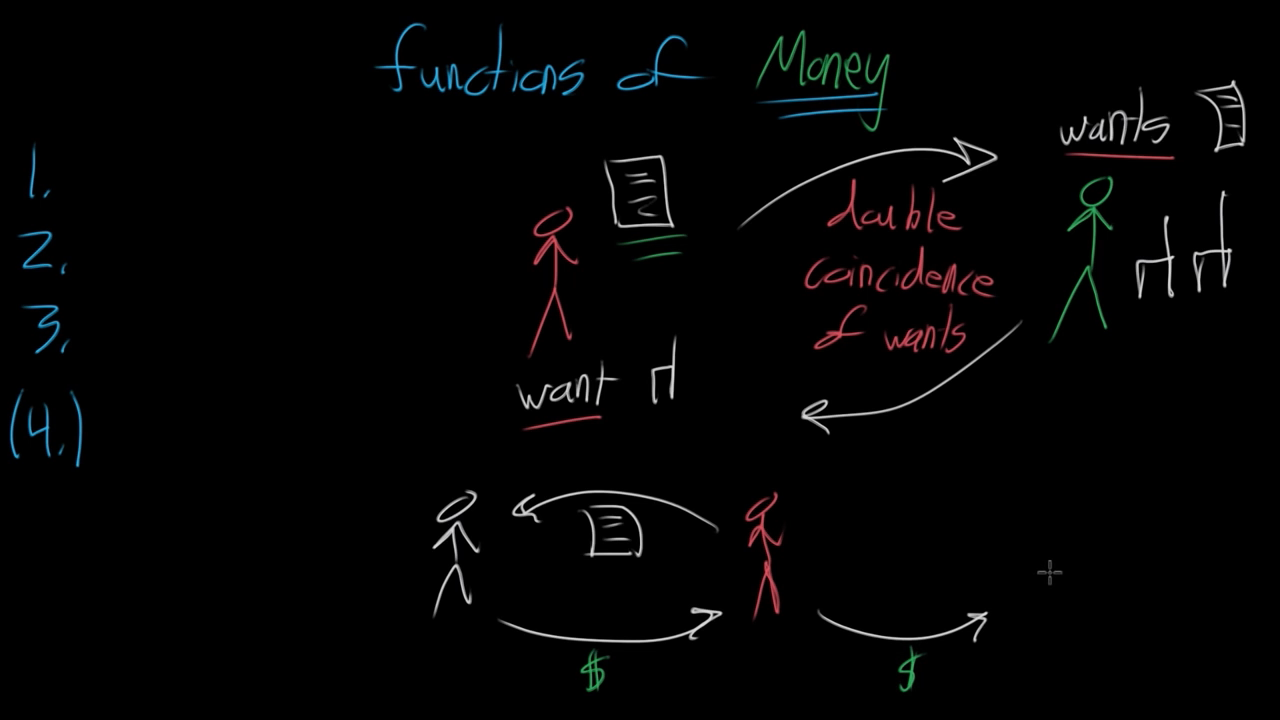 functions of Money
1.
2.
3.
(4.)
wants
double
coincidence
of wants
want
$
$